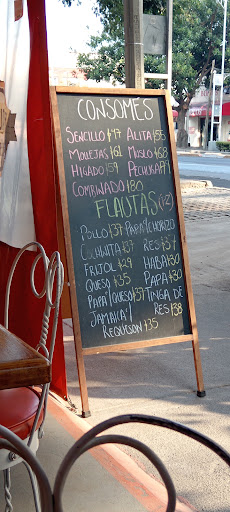 CONSOMES
SENCILLO $47 ALITA $55
MOLLEJAS $61 MUSLO $68
HIGADO $59 PECHUGA $77
COMBINADO $80
FLAUTAS (2)
POLLO $37 PAPA Y CHORIZO
COCHINITA $37 RES $37
FRIJOL $29 HABA $30
QUESO $35 PAPA $30
PAPA Y QUESO $37 TINGA DE
JAMAICA Y RES $38
REQUESON $35